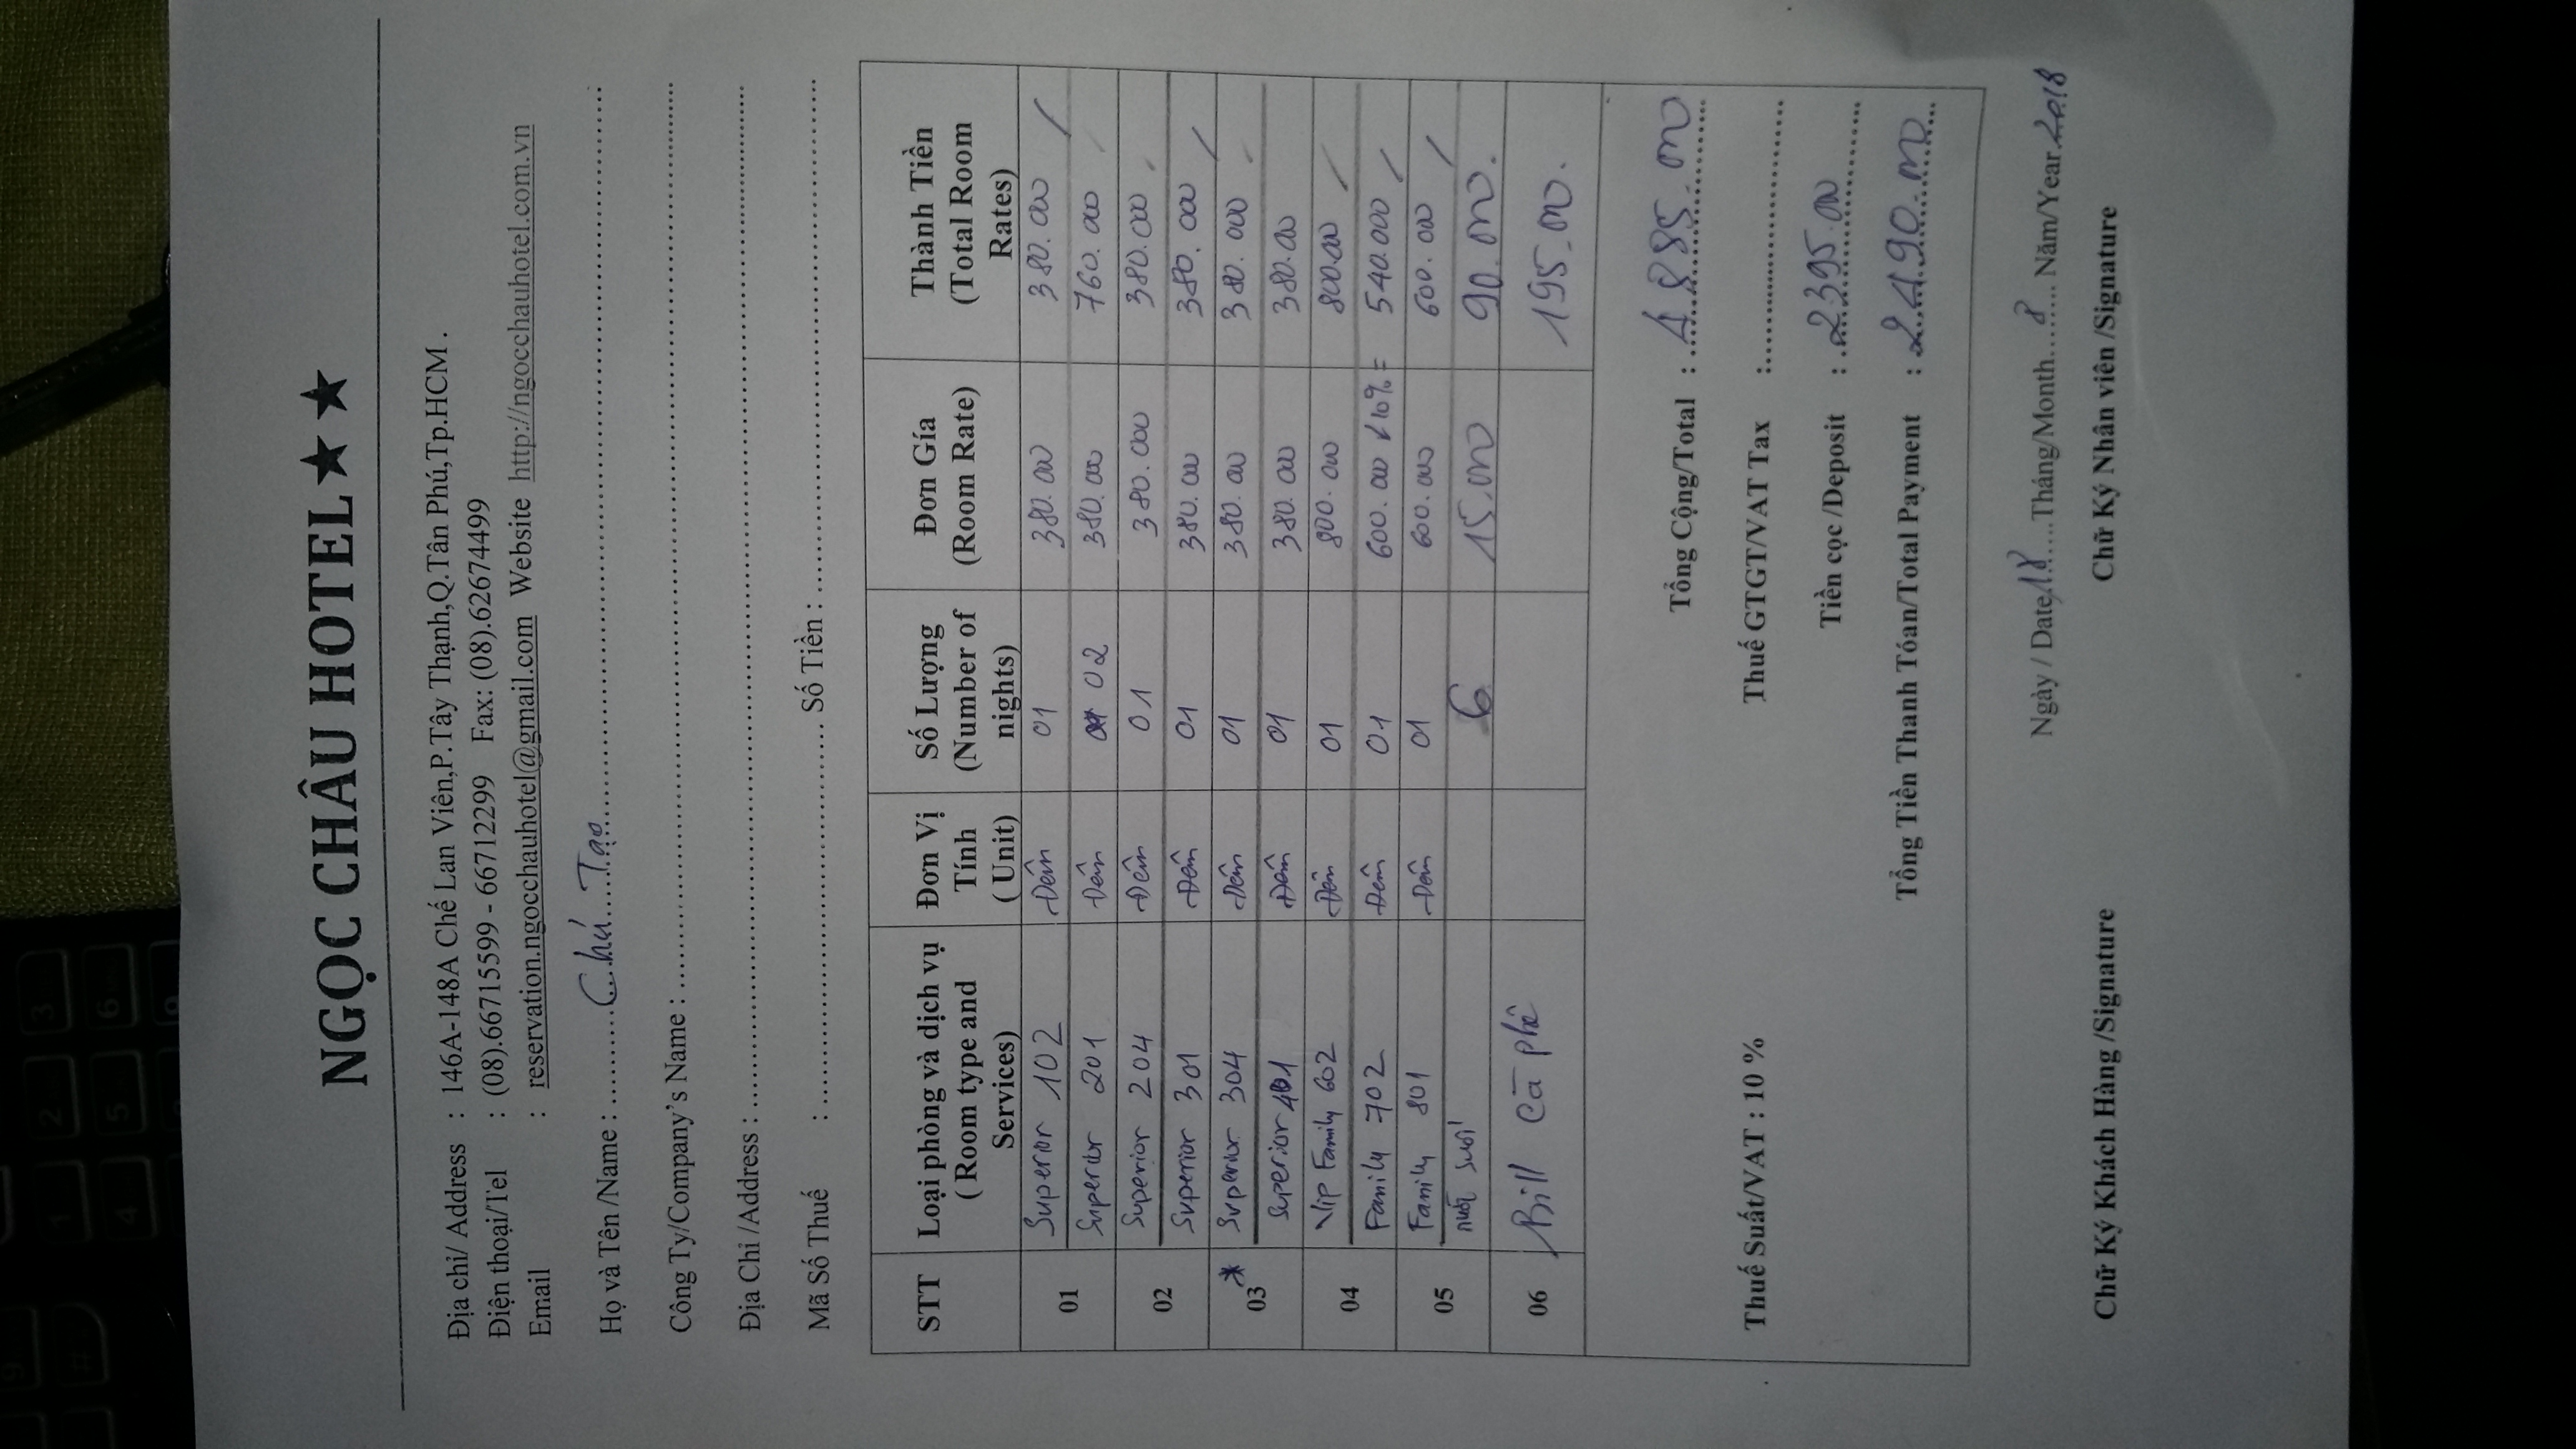 NGỌC CHÂU HOTEL★★
Địa chỉ/ Address : 146A-148A Chế Lan Viên,P.Tây Thạnh,Q.Tân Phú,Tp.HCM .
Điện thoại/Tel : (08).66715599 - 66712299 Fax: (08).62674499
Email : reservation.ngocchauhotel@gmail.com Website http://ngocchauhotel.com.vn
Họ và Tên /Name : Chú Tạo
Công Ty/Company's Name :
Địa Chỉ /Address :
Mã Số Thuế : Số Tiền :
STT Loại phòng và dịch vụ ( Room type and Services) Đơn Vị Tính ( Unit) Số Lượng (Number of nights) Đơn Gía (Room Rate) Thành Tiền (Total Room Rates)
01 Superior 102 Đêm 01 380.000 380.000
Superior 201 Đêm 02 380.000 760.000
02 Superior 204 Đêm 01 380.000 380.000
Superior 301 Đêm 01 380.000 380.000
03 * Superior 304 Đêm 01 380.000 380.000
Superior 401 Đêm 01 380.000 380.000
04 Vip Family 602 Đêm 01 800.000 800.000
Family 702 Đêm 01 600.000 ↓10% = 540.000
05 Family 801 Đêm 01 600.000 600.000
nước suối 6 15.000 90.000.
06 Bill cà phê 195.000.
Tổng Cộng/Total : 4885.000
Thuế Suất/VAT : 10 % Thuế GTGT/VAT Tax :
Tiền cọc /Deposit : 2395.000
Tổng Tiền Thanh Tóan/Total Payment : 2.490.000
Ngày / Date 18 Tháng/Month 8 Năm/Year 2018
Chữ Ký Khách Hàng /Signature Chữ Ký Nhân viên /Signature